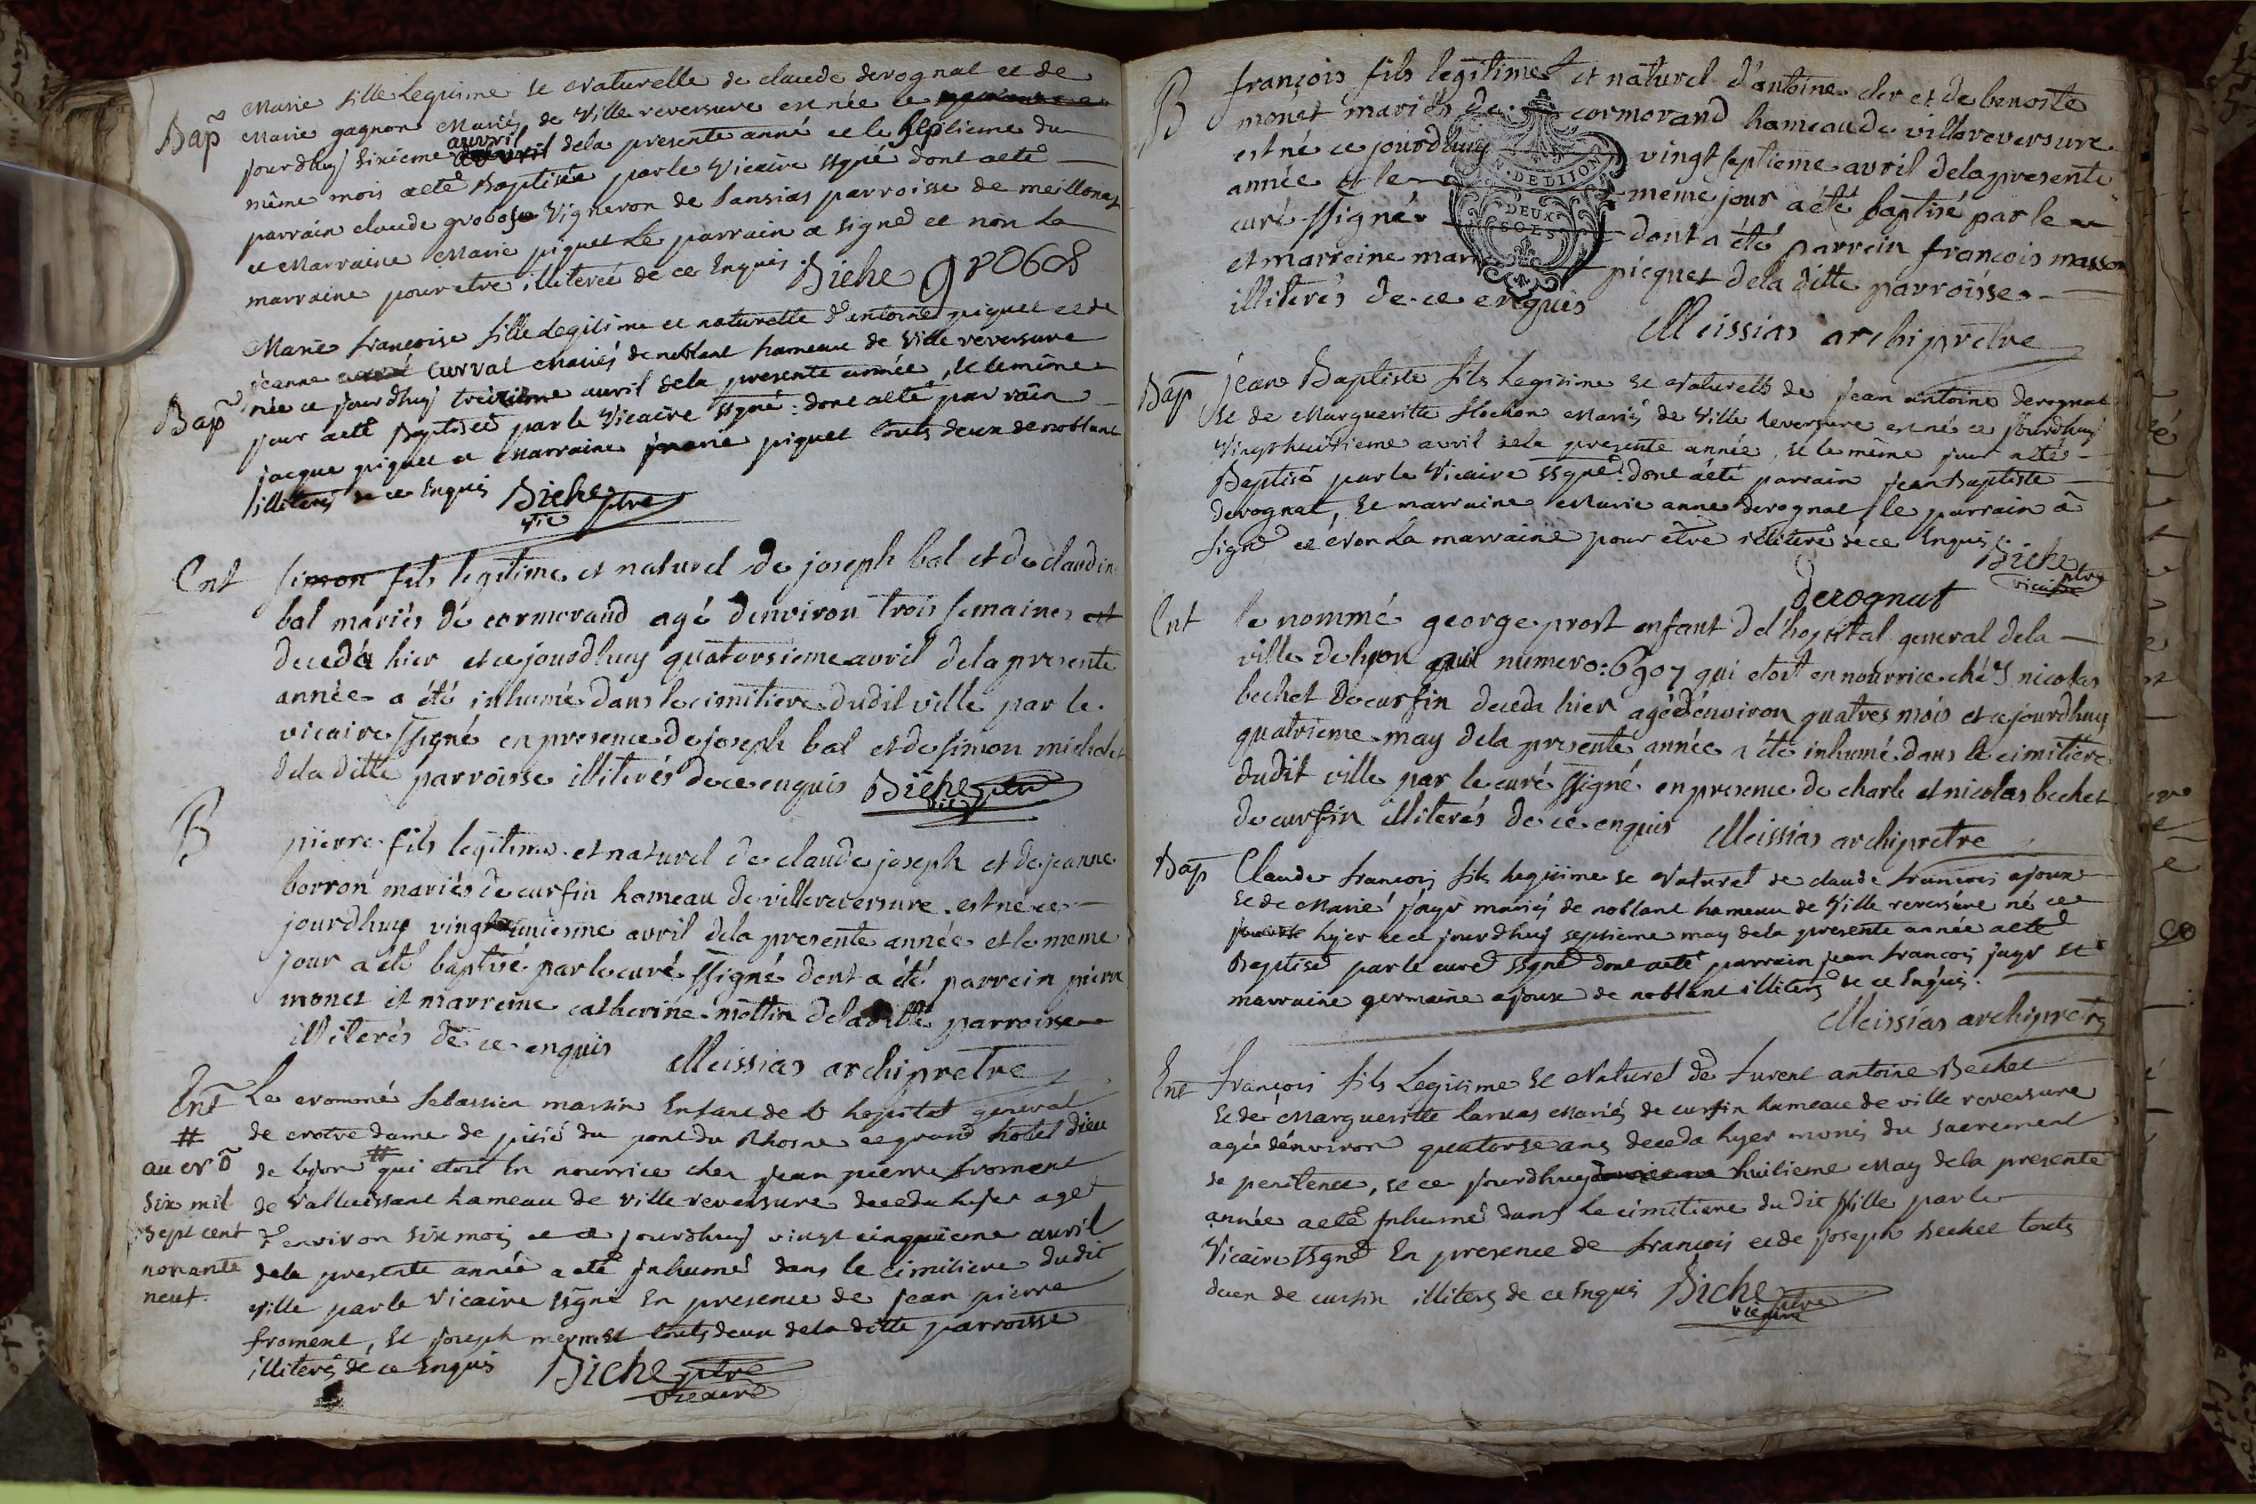 Bap
Marie fille Legitime et Naturelle de claude derognat et de
Marie gagnon Mariés de Ville reversure est née ce
jourdhuj sixieme avvril dela presente anné et le septieme du
même mois aeté Baptisée par le Vicaire ssgné dont aeté
parrain claude grobose Vigneron de Sansias parroisse de meillonat
et Marraine Marie piquet Le parrain a signé et non La
marraine pour etre illiterée de ce Enquis. Biche
Bap
Marie francoise fille Legitime et naturelle d'antoine piquet et de
jeanne Curval Mariés de noblant hameau de Ville reversure
née ce jourdhuj treizieme avvril dela presente année, et le même
jour aeté Baptisée par le Vicaire ssgné: dont aeté parrain
jacque piquet et Marraine piquet touts deux de noblant
illiterés de ce Enquis Biche ptre
vic
Ent
Simon fils legitime et naturel de joseph bal et de claudine
bal mariés de cormorand agé denviron trois semaines est
decedé hier et cejourdhuy quatorsieme avril dela presente
année a été inhumé dans le cimitiere dudit ville par le
vicaire ssigné en presence de joseph bal et de simon michelet
dela ditte parroisse illiterés de ce enquis Biche ptre
vic
B
pierre fils legitime et naturel de claude joseph et de jeanne
borron mariés de curfin hameau de villereversure est né ce
jourdhuy vingt unieme avril dela presente année et le meme
jour a été baptisé par le curé ssigné dont a été parrein pierre
monet et marreine catherine mottin dela ditte parroisse
illiterés de ce enquis Meissias archipretre
Ent
#
au nrõ
six mil
sept cent
nonante
neuf.
Le nommé Sebastien martin Enfant de L'hopital general
de notre dame de pitié du pont du Rhosne et grand hotel dieu
de Lyon # qui etoit En nourrice chez jean pierre froment
de Valluissant hameau de ville reversure deceda hyer agé
d'environ six mois et ce jourdhuj vingt cinquieme avvril
dela presente année a eté Inhumé dans le cimitiere dudit
Ville par le Vicaire ssgné En presence de jean pierre
froment, et joseph mermet touts deux dela ditte parroisse
illiterés de ce Enquis Biche ptre
vicaire
B
françois fils legitime et naturel d'antoine cler et de benoite
monet mariés de cormorand hameau de villereversure
est né ce jourdhuy vingt septieme avril dela presente
année et le meme jour a été baptisé par le
curé ssigné dont a été parrein francois masson
et marreine mari picquet dela ditte parroisse
illiterés de ce enquis
Meissias archipretre
DE DIJON
DEUX
SOLS
Bap
jean Baptiste fils Legitime et Naturelle de jean antoine derognat
et de Margueritte flochon Mariés de Ville Reversure est né ce jourdhuj
Vingt huitieme avril dela presente année, et le même jour aeté
Baptisé par le Vicaire ssgné: dont aeté parrain jean Baptiste
derognat, et marraine Marie anne derognat, le parrain â
signé et Non La marraine pour être illiteré de ce Enquis Biche
ptre
vicaire
derognat
Ent
le nommé george prost enfant de l'hopital general dela
ville de lyon numero: 6907 qui etoit en nourrice chés nicolas
bechet de curfin deceda hier agé d'environ quatres mois et cejourdhuy
quatrieme may dela presente année a été inhumé dans le cimitiere
dudit ville par le curé ssigné en presence de charle et nicolas bechet
de curfin illiterés de ce enquis Meissias archipretre
Bap
Claude francois fils legitime et Naturel de claude francois ajoux
et de Marie jayr mariés de noblant hameau de Ville reversure né ce
hyer et ce jourdhuj septieme may dela presente année aeté
Baptisé par le curé ssgné dont aeté parrain jean francois jayr et
marraine germaine ajoux de noblant illiterés de ce Enquis.
Meissias archipretre
Ent
francois fils Legitime et Naturel de Lurent antoine Bechet
et de Margueritte Larvas Mariés de curfin hameau de ville reversure
agé dénviron quatorse ans deceda hyer munis du sacrement
de penitence, et ce jourdhuj huitieme May dela presente
année aeté Inhumé dans le cimitiere du dit Ville par le
Vicaire ssgné En presence de francois et de joseph Bechet touts
deux de curfin illiterés de ce Enquis Biche ptre
vicaire